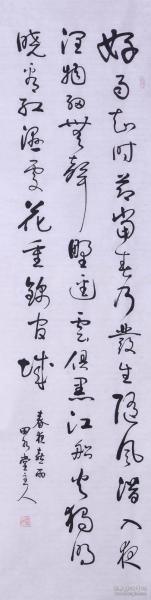 好雨知时节当春乃发生随风潜入夜
润物细无声野径云俱黑江船火独明
晓看红湿处花重锦官城
春夜喜雨
堂主人